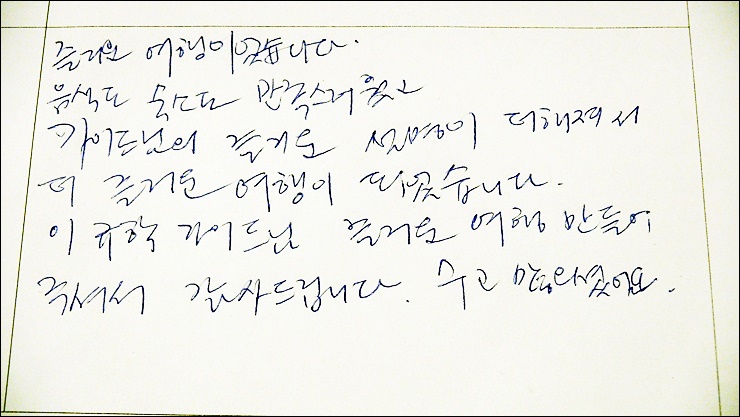 즐거운 여행이었습니다.
음식도 숙소도 만족스러웠고
가이드님의 즐거운 설명이 더해져서
더 즐거운 여행이 되었습니다.
이규학 가이드님 즐거운 여행 만들어
주셔서 감사드립니다. 수고 많으셨어요.